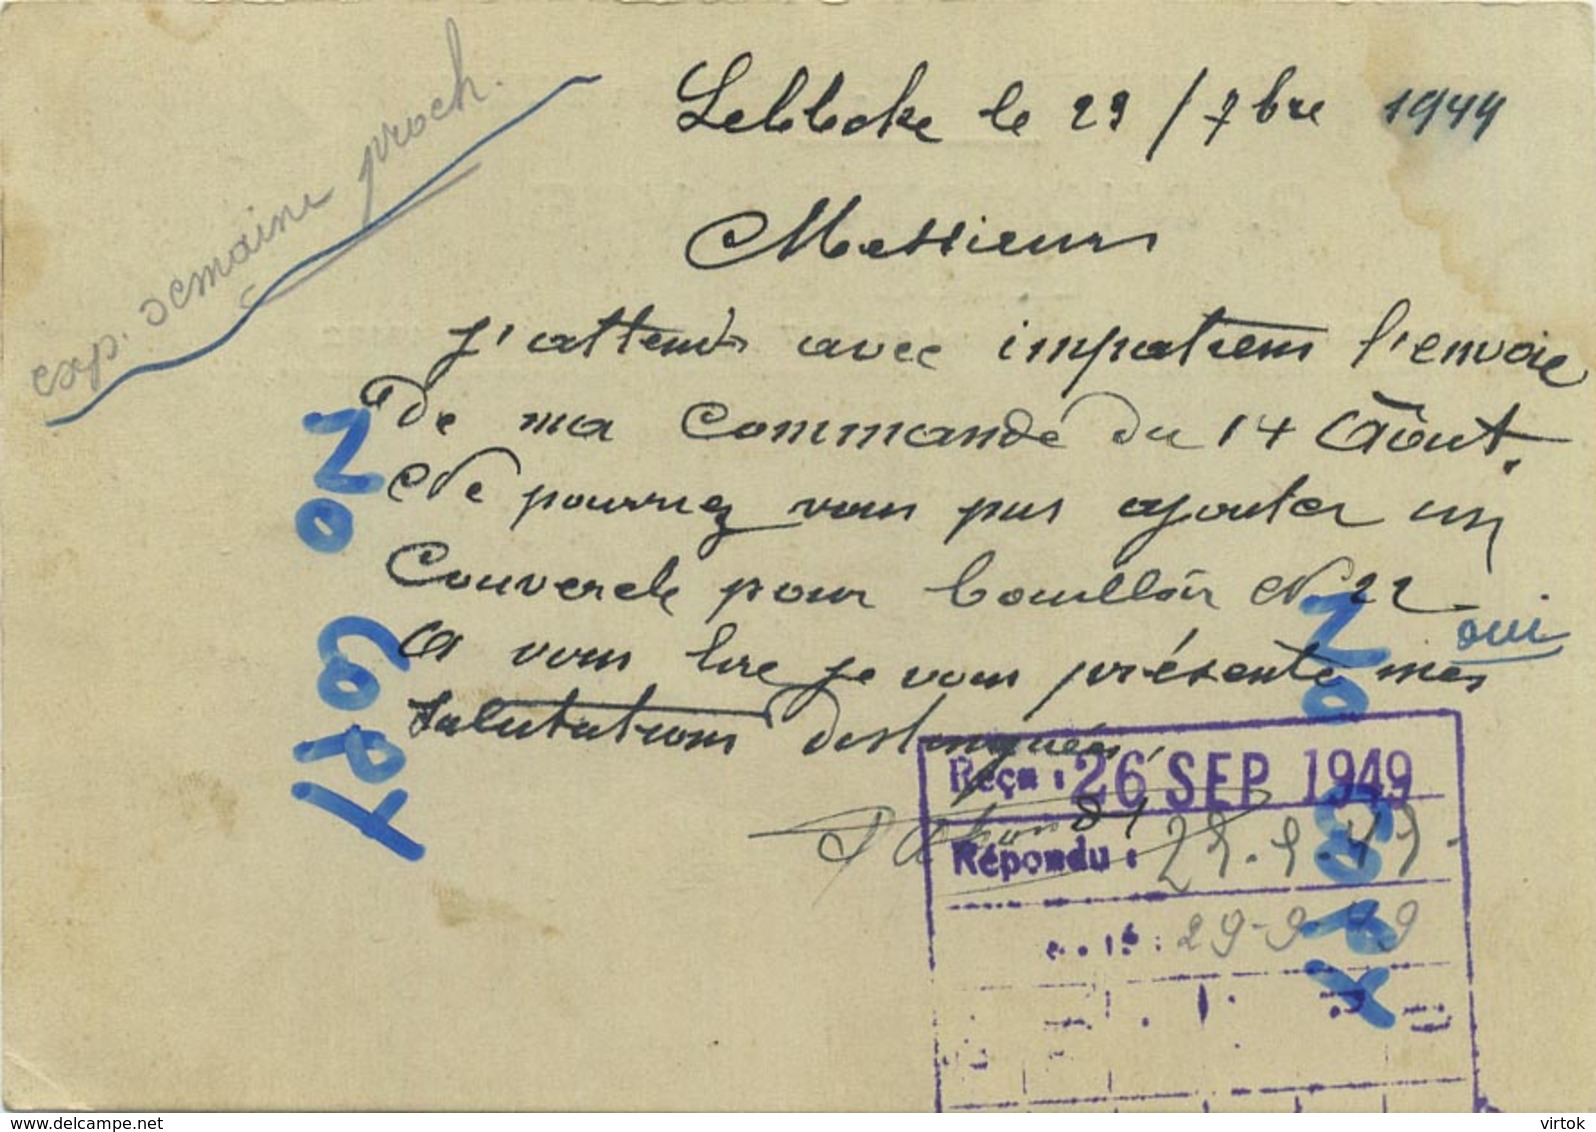 exp. semaine proch.
Lebbeke le 23 / 7bre 1949
Messieurs
J'attends avec impatiens l'envoie
de ma commande du 14 Août.
Ne pourrez vous pas ajouter un
Couvercle pour bouilloir N 22
oui
A vous lire je vous présente mes
salutations distinguées,
Reçu : 26 SEP 1949
Répondu :
29-9-49
NO COPY
NO COPY
www.delcampe.net
virtok